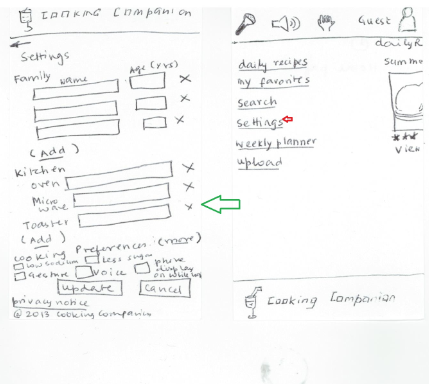 Cooking Companion
Settings
Family name Age (yrs)
x
x
x
(Add)
Kitchen
oven x
Microwave
x
Toaster
(Add)
Cooking Preferences (more)
low sodium less sugar phone
gesture voice display
on while
update cancel
privacy notice
© 2013 Cooking Companion
Guest
daily R
daily recipes summ
my favorites
search
settings
weekly planner
upload
View
Cooking Companion